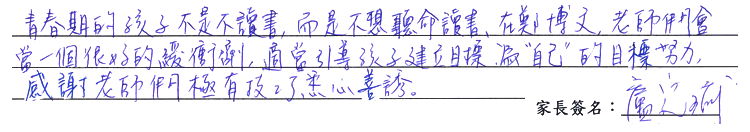 青春期的孩子不是不讀書,而是不想聽命讀書、在鄭博文,老師們會
當一個很好的緩衝劑,適當引導孩子建立目標 為"自己"的目標努力,
感謝老師們極有技巧悉心善誘。
家長簽名:盧